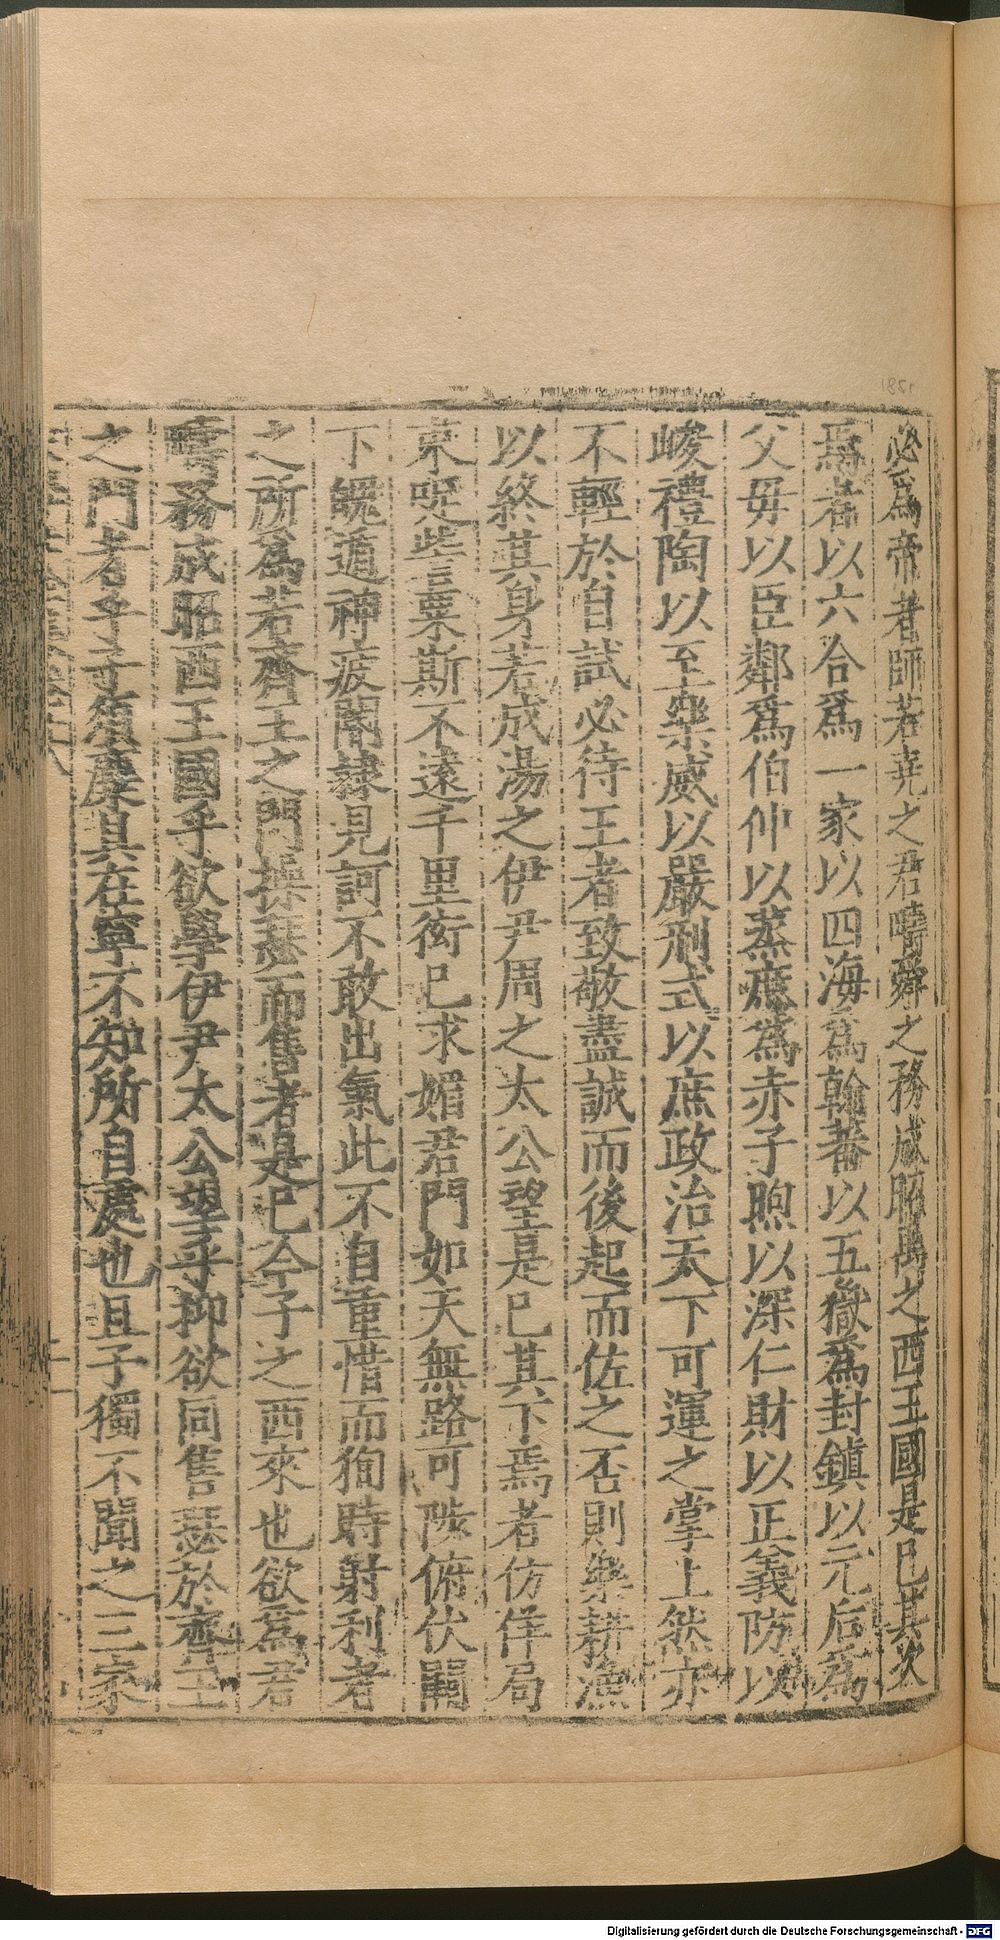 必爲帝者師若堯之君疇舜之務成昭禹之西王國是已其次
爲者以六合爲一家以四海爲翰蕃以五嶽爲封鎮以元后爲
父毋以臣鄰爲伯仲以蒸庶爲赤子煦以深仁財以正義防以
峻禮陶以至樂威以嚴刑式以庶政治天下可運之掌上然亦
不輕於自試必待王者致敬盡誠而後起而佐之否則樂耕漁
以終其身若成湯之伊尹周之太公望是已其下焉者仿佯局
束哫訾粟斯不遠千里衒已求媚君門如天無路可陟俯伏闕
下魄遁神疲閽隸見訶不敢出氣此不自重惜而狥時射利者
之所爲若齊王之門操瑟而售者是已今子之西來也欲爲君
疇務成昭西王國乎欲學伊尹太公望乎抑欲同售瑟於齊王
之門者乎子須麋具在寧不知所自處也且子獨不聞之三家